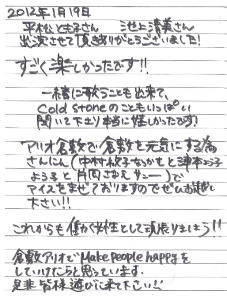 2012年1月19日
平松とも子さん 池上清美さん
出演させて頂きありがとうございました!
すごく楽しかったです!!
一緒に歌うことも出来て、
Cold Stoneのこともいっぱい
聞いて下さり本当に嬉しかったです!
アリオ倉敷で倉敷を元気にする為
さんにん
よ
アイスをまぜておりますのでぜひお越し
下さい!!
これからも働く女性として頑張りましょう!!
倉敷アリオでMake people happyを
していけたらと思っています。
是非皆様遊びに来て下さい!!